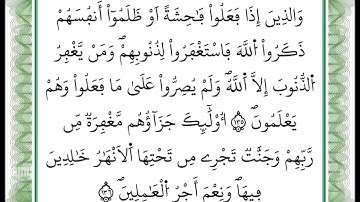 وَالذِينَ إِذَا فَعَلُواْ فَٰحِشَةً اَوْ ظَلَمُوٓاْ أَنفُسَهُمْ
ذَكَرُواْ اللَّهَ فَاسْتَغْفَرُواْ لِذُنُوبِهِمْ وَمَنْ يَّغْفِرُ
اُلذُّنُوبَ إِلَّا اَللَّهُ وَلَمْ يُصِرُّواْ عَلَىٰ مَا فَعَلُواْ وَهُمْ
يَعْلَمُونَ ١٣٥ أُوْلَٰٓئِكَ جَزَآؤُهُم مَّغْفِرَةٌ مِّن
رَّبِّهِمْ وَجَنَّٰتٌ تَجْرِے مِن تَحْتِهَا اَلَانْهَٰرُ خَٰلِدِينَ
فِيهَا وَنِعْمَ أَجْرُ اُلْعَٰمِلِينَ ١٣٦